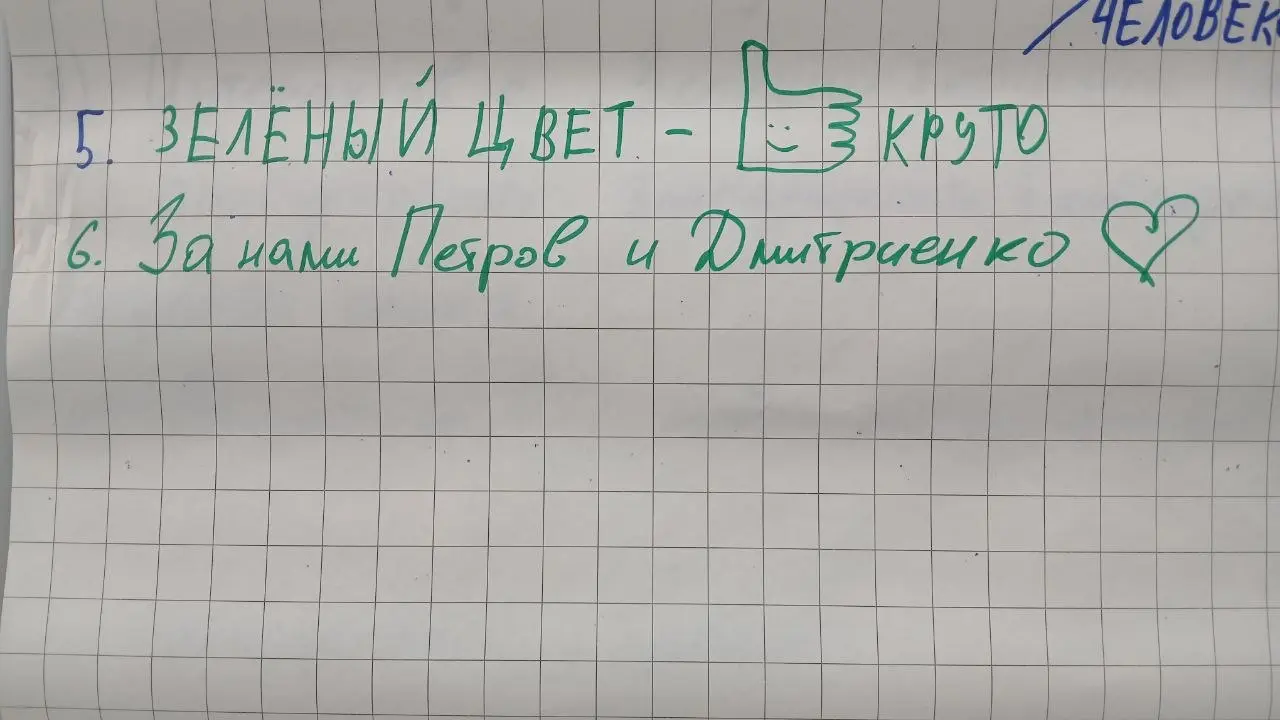 / ЧЕЛОВЕК
5. ЗЕЛЁНЫЙ ЦВЕТ - КРУТО
6. За нами Петров и Дмитриенко